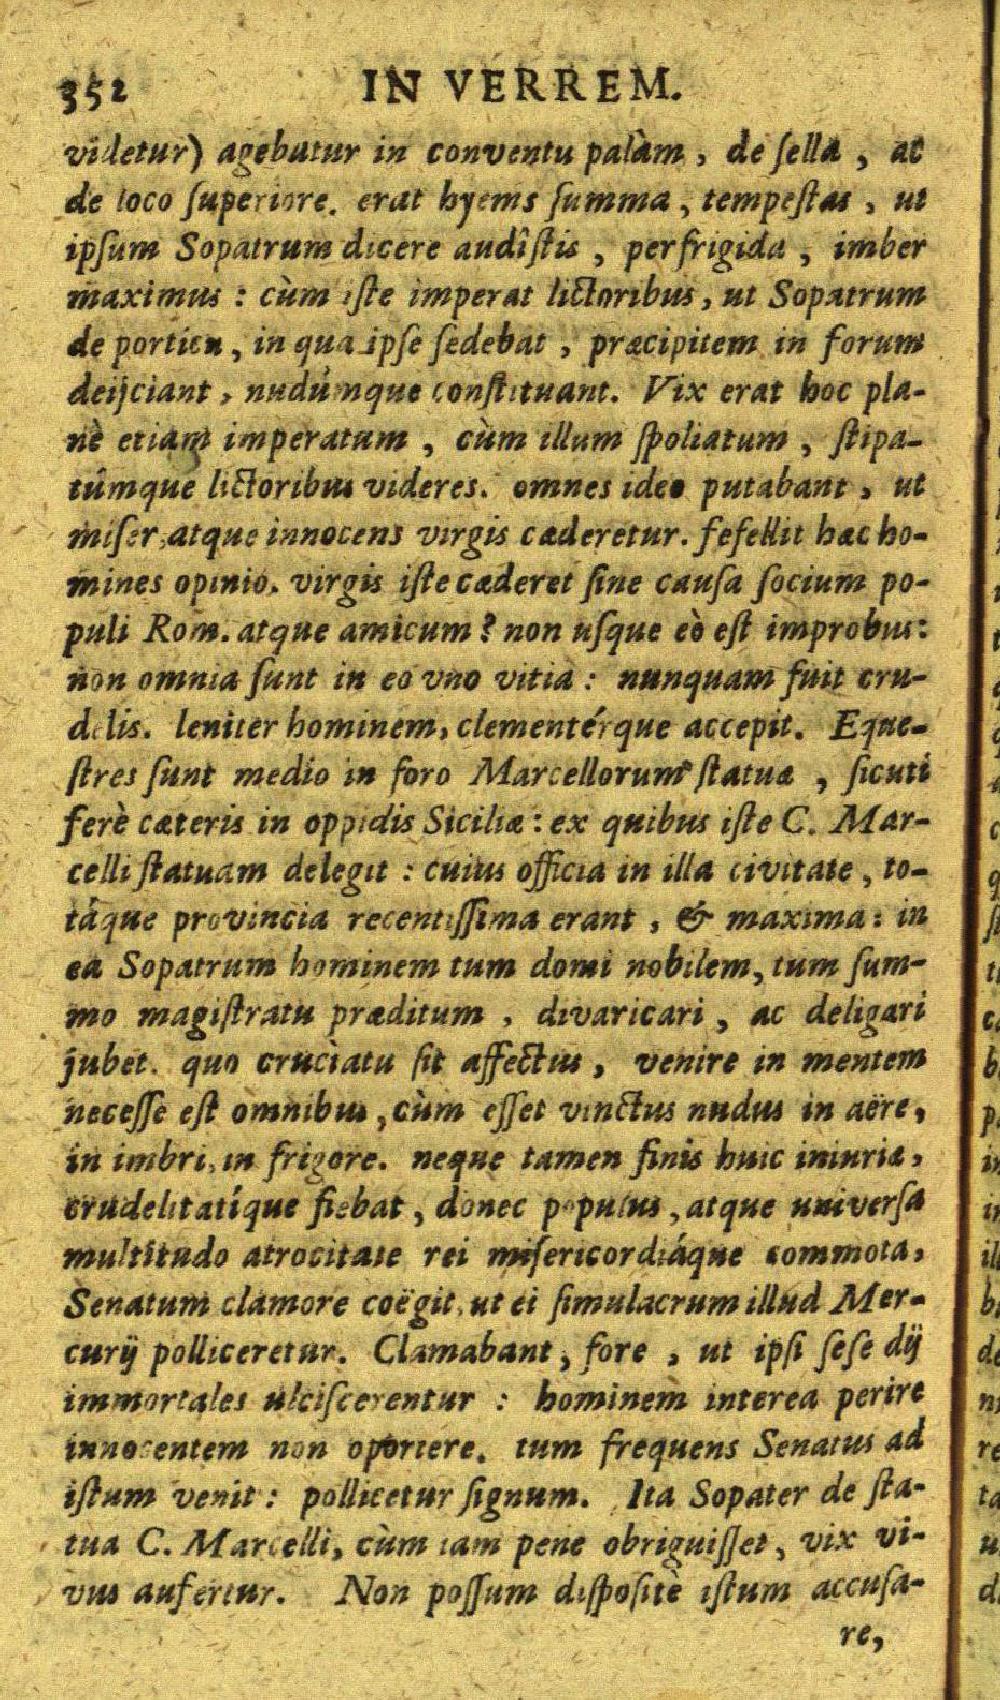 352 IN VERREM.
videtur) agebatur in conventu palàm, de ſella, ac
de loco ſuperiore. erat hyems ſumma, tempeſtas, ut
ipſum Sopatrum dicere audîſtis, perfrigida, imber
maximus: cùm iſte imperat lictoribus, ut Sopatrum
de porticu, in qua ipſe ſedebat, præcipitem in forum
deijciant, nudúmque conſtituant. Vix erat hoc pla-
nè etiam imperatum, cùm illum ſpoliatum, ſtipa-
túmque lictoribus videres. omnes ideo putabant, ut
miſer, atque innocens virgis cæderetur. fefellit hæc ho-
mines opinio. virgis iſte cæderet ſine cauſa ſocium po-
puli Rom. atque amicum? non uſque eò eſt improbus:
non omnia ſunt in eo vno vitia: nunquam fuit cru-
delis. leniter hominem, clementérque accepit. Eque-
ſtres ſunt medio in foro Marcellorum ſtatuæ, ſicuti
ferè cæteris in oppidis Siciliæ: ex quibus iſte C. Mar-
celli ſtatuam delegit: cuius officia in illa civitate, to-
táque provincia recentiſſima erant, & maxima: in
ea Sopatrum hominem tum domi nobilem, tum ſum-
mo magiſtratu præditum, divaricari, ac deligari
jubet. quo cruciatu ſit affectus, venire in mentem
neceſſe eſt omnibus, cùm eſſet vinctus nudus in aëre,
in imbri, in frigore. neque tamen finis huic iniuriæ,
crudelitatíque fiebat, donec populus, atque universſa
multitudo atrocitate rei miſericordiáque commota,
Senatum clamore coëgit, ut ei ſimulacrum illud Mer-
curij polliceretur. Clamabant, fore, ut ipſi ſeſe dij
immortales ulciſcerentur: hominem interea perire
innocentem non oportere. tum frequens Senatus ad
iſtum venit: pollicetur ſignum. Ita Sopater de ſta-
tua C. Marcelli, cùm iam pene obriguiſſet, vix vi-
vus aufertur. Non poſſum diſpoſitè iſtum accuſa-
re,